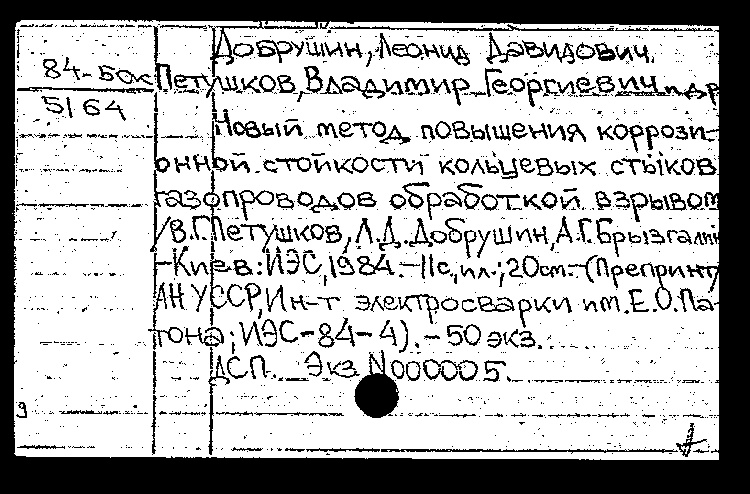 Добрушин, Леонид Давидович.
84-Бок Петушков, Владимир Георгиевич и др
5164
Новый метод повышения коррози-
онной стойкости кольцевых стыков
газопроводов обработкой взрывом
/В.Г.Петушков, Л.Д. Добрушин, А.Г.Брызгалин
-Киев: ИЭС, 1984.-11с., ил.; 20см.-(Препринт/
АН УССР, Ин-т электросварки им. Е.О.Па-
тона; ИЭС-84-4).-50 экз.
ДСП. Экз N000005.
9